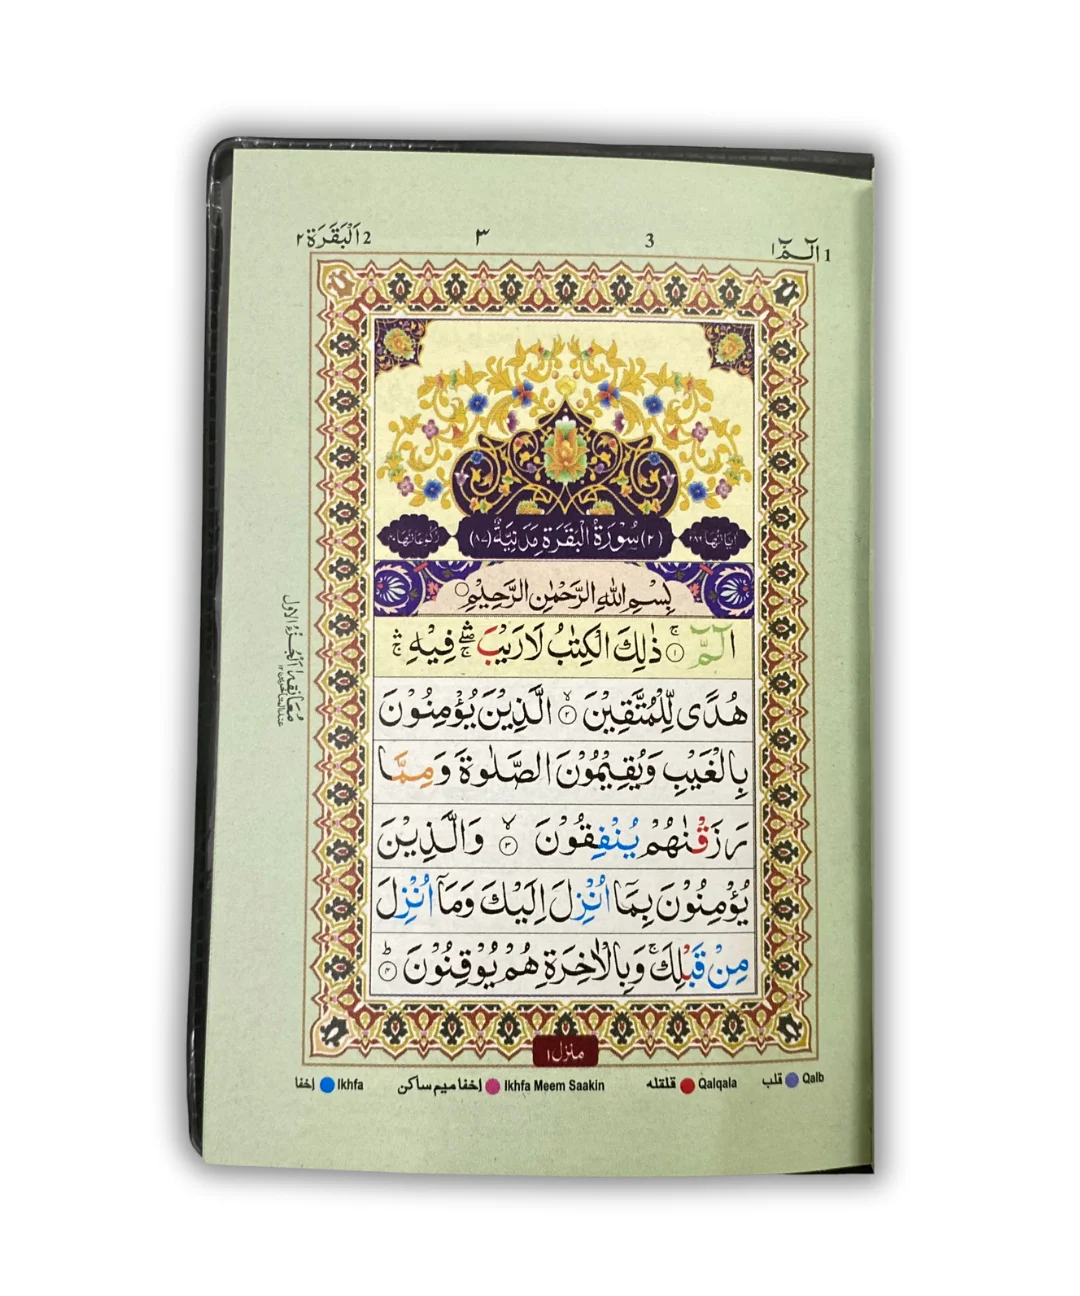 الٓمّٓ ١ 1 3 ٣ 2 اَلْبَقَرَة ٢
اٰيَاتُهَا ٢٨٦ (٢) سُوْرَةُ الْبَقَرَةِ مَدَنِيَّةٌ (٨٧) رُكُوْعَاتُهَا ٤٠
بِسْمِ اللّٰهِ الرَّحْمٰنِ الرَّحِيْمِ
الٓمّٓ ۚ ۝١ ذٰلِكَ الْكِتٰبُ لَا رَيْبَ ۛۖ فِيْهِ ۛ
هُدًى لِّلْمُتَّقِيْنَ ۙ ۝٢ الَّذِيْنَ يُؤْمِنُوْنَ
بِالْغَيْبِ وَيُقِيْمُوْنَ الصَّلٰوةَ وَمِمَّا
رَزَقْنٰهُمْ يُنْفِقُوْنَ ۙ ۝٣ وَالَّذِيْنَ
يُؤْمِنُوْنَ بِمَآ اُنْزِلَ اِلَيْكَ وَمَآ اُنْزِلَ
مِنْ قَبْلِكَ ۚ وَبِالْاٰخِرَةِ هُمْ يُوْقِنُوْنَ ؕ ۝٤
منزل ١
معانقه ١ اَلْجُزْءُ الاول
Qalb قلب Qalqala قلقله Ikhfa Meem Saakin إخفا ميم ساكن Ikhfa إخفا